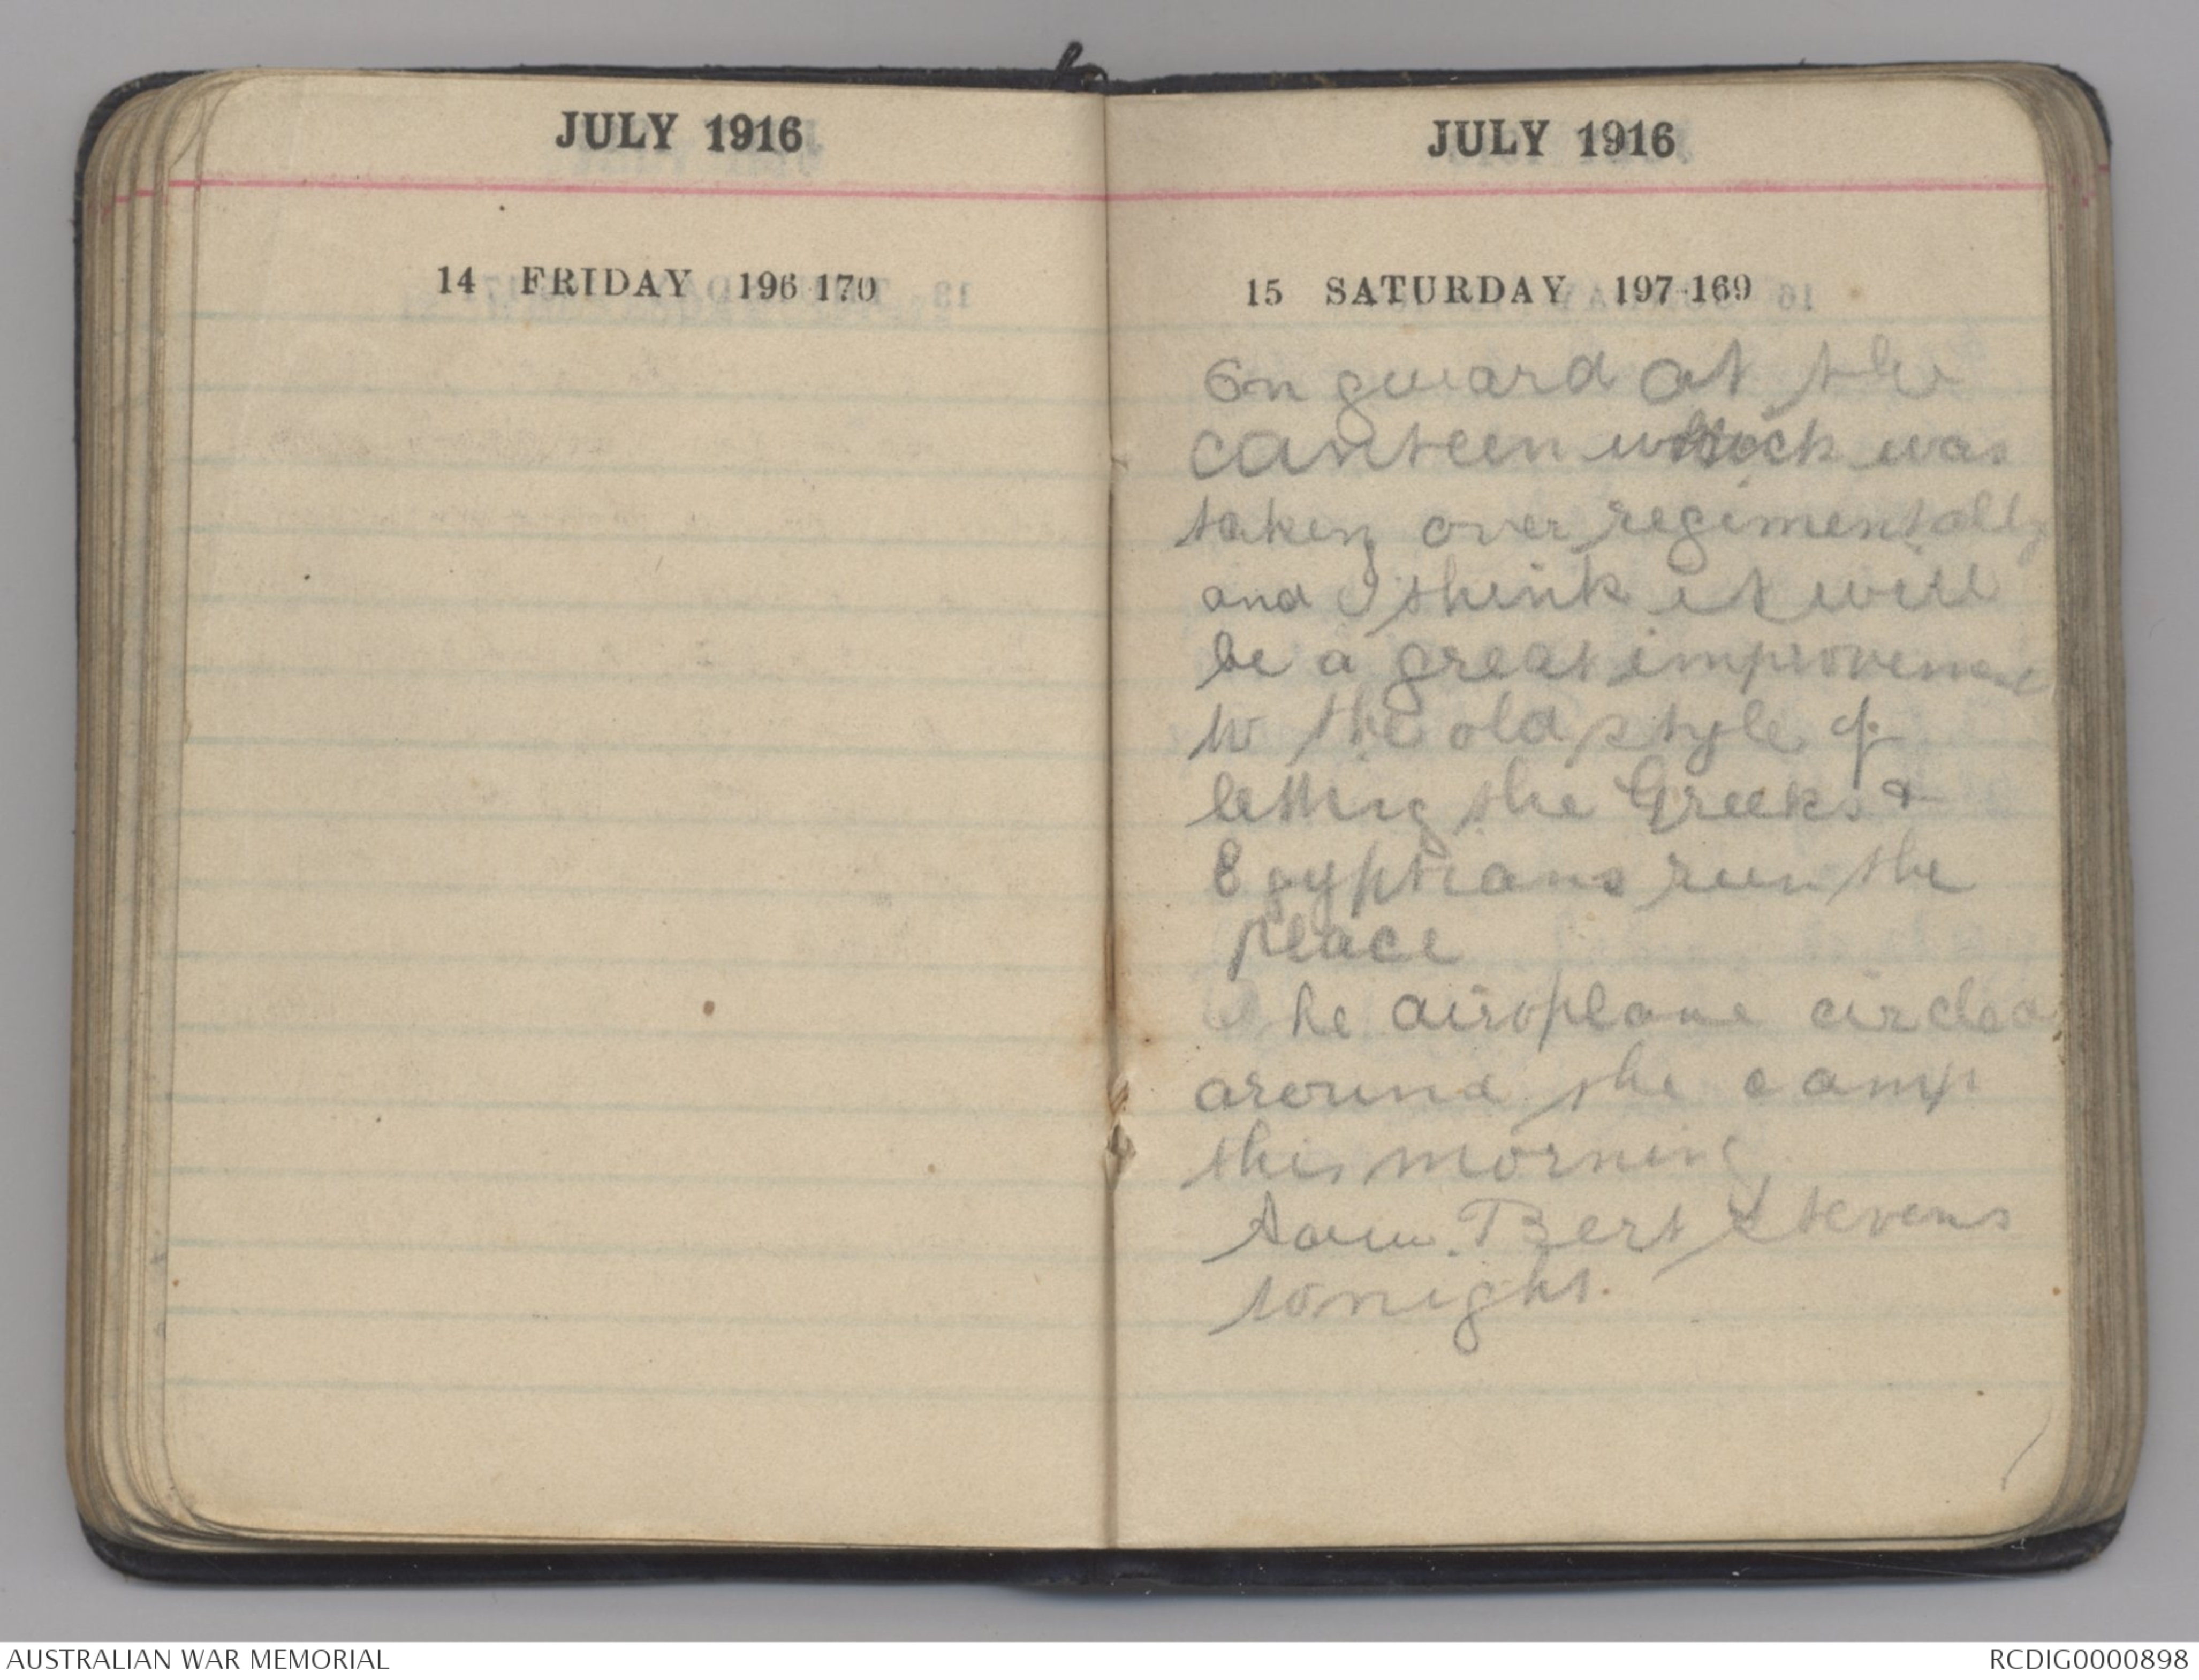 JULY 1916
14 FRIDAY 196-170
JULY 1916
15 SATURDAY 197-169
On guard at the
canteen which was
taken over regimentally
and I think it will
be a great improvement
to the old style of
letting the Greeks &
Egyptians run the
place
The airoplane circled
around the camp
this morning
Saw Bert Stevens
tonight.
AUSTRALIAN WAR MEMORIAL
RCDIG0000898